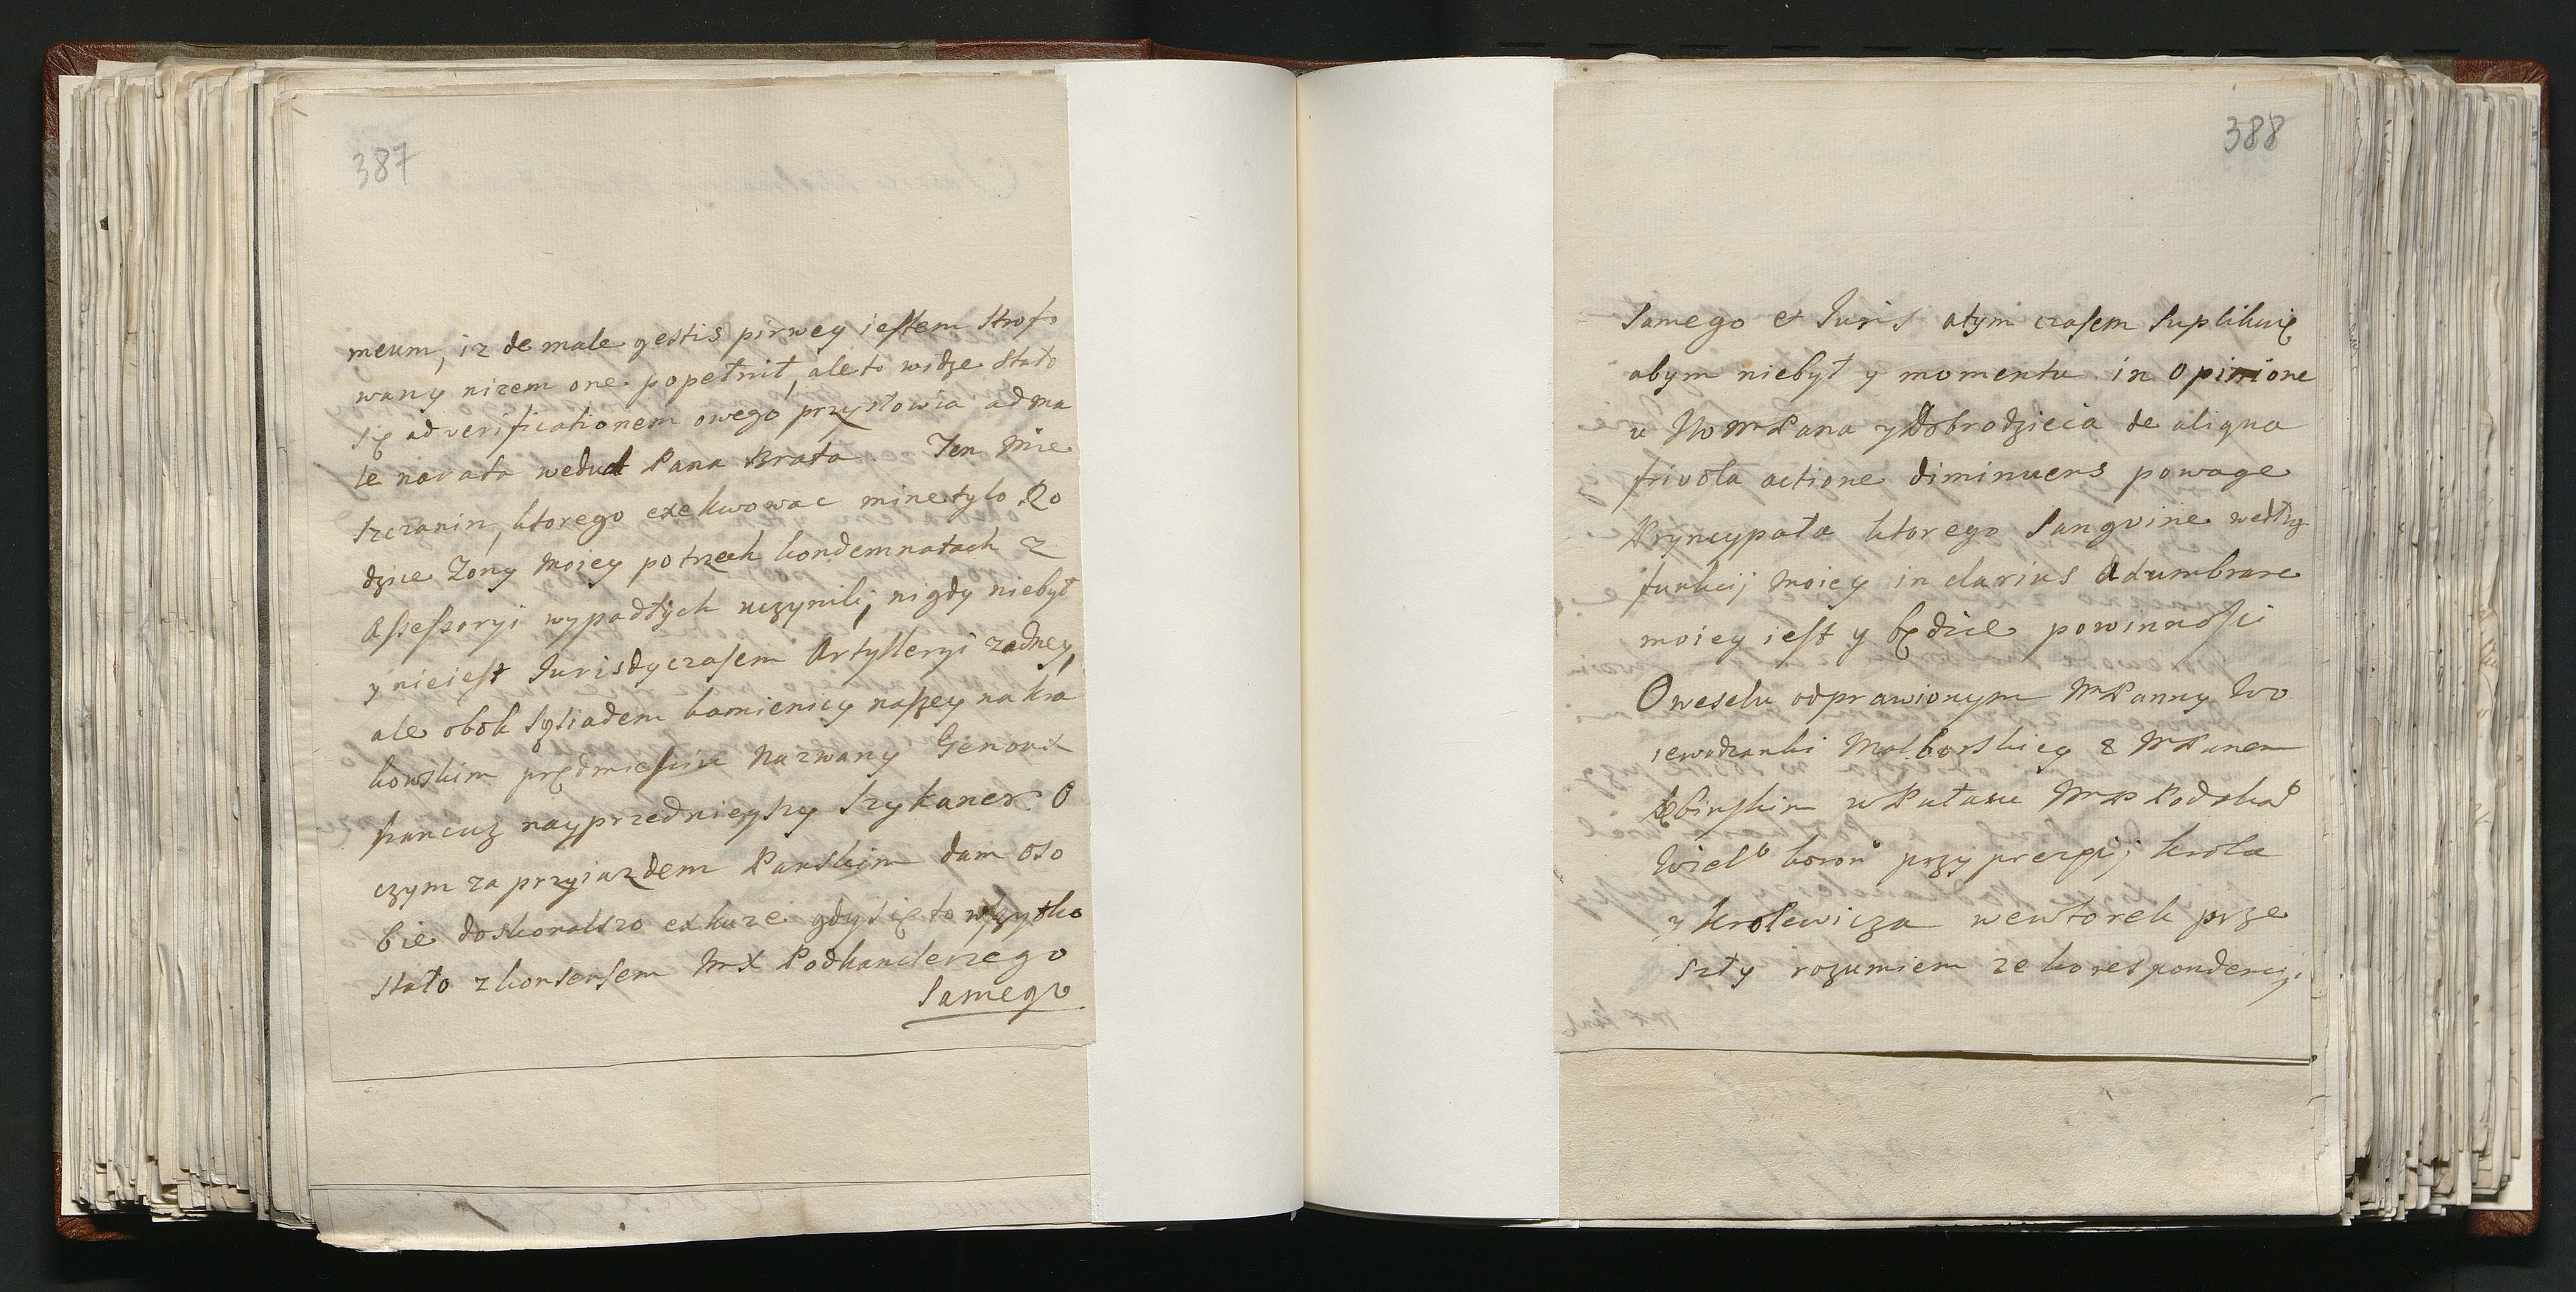 387
meum, iz de male gestis pirwey iestem strofo
wany nizem one popełnił, ale to widze stało
się ad verificationem owego przysłowia ad ma
le narata weduł Pana Brata. Ten Mie
szczanin, ktorego exekwowac mine tylo Ro
dzice Zony moiey po trzech kondemnatach z
Assessoryi wypadłych uczynili, nigdy niebył
y nieiest Jurisdyczasem Artylleryi zadney,
ale obok sąsiadem kamienicy naszey na kra
kowskim prędmiesciu nazwany Genoux
francuz nayprzednieyszy szykaner O
czym za przyiazdem Panskim dam oso
bie doskonalszo exkuze gdy się to wszytko
stało z konsensem MX Podkanclerzego
Samego
388
Samego et Juris atym czasem suplikuię
abym niebył y momentu in opinione
u JWMPana y Dobrodzieia de aliqua
frivola actione diminuens powage
Pryncypała ktorego Sangvine według
funkcij moiey in clarius Adumbrare
moiey iest y będzie powinnosci
O weselu odprawionym MPanny Wo
iewodzanki Malborskiey z MPanem
Dębinskim w Pałacu MP Podskar
Wielo koron przy prezęcij krola
y krolewicza wewtorek prze
szły rozumiem ze korespondencij